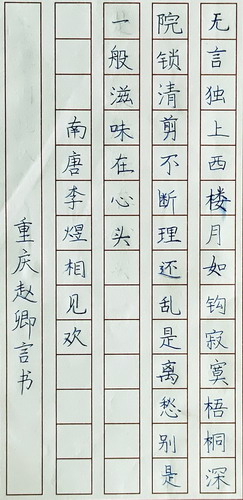 无言独上西楼月如钩寂寞梧桐深
院锁清剪不断理还乱是离愁别是
一般滋味在心头
南唐李煜相见欢
重庆赵卿言书